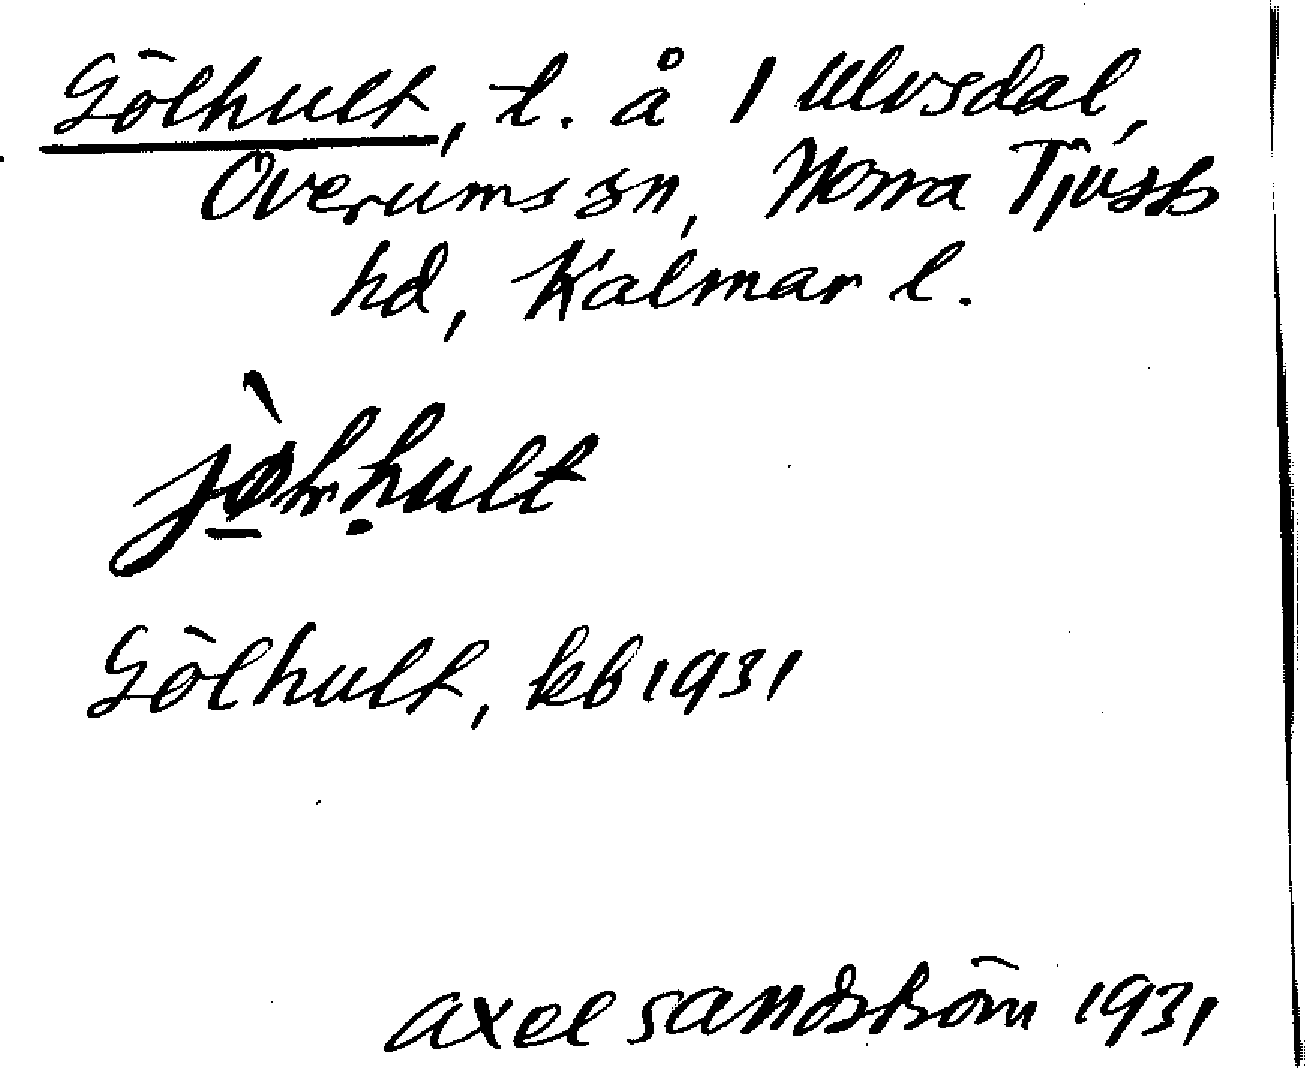 Gölhult, t. å 1 Ulvsdal,
Överums sn, Norra Tjusts
hd, Kalmar l.
Gölhult, kb 1931
Axel Sandström 1931